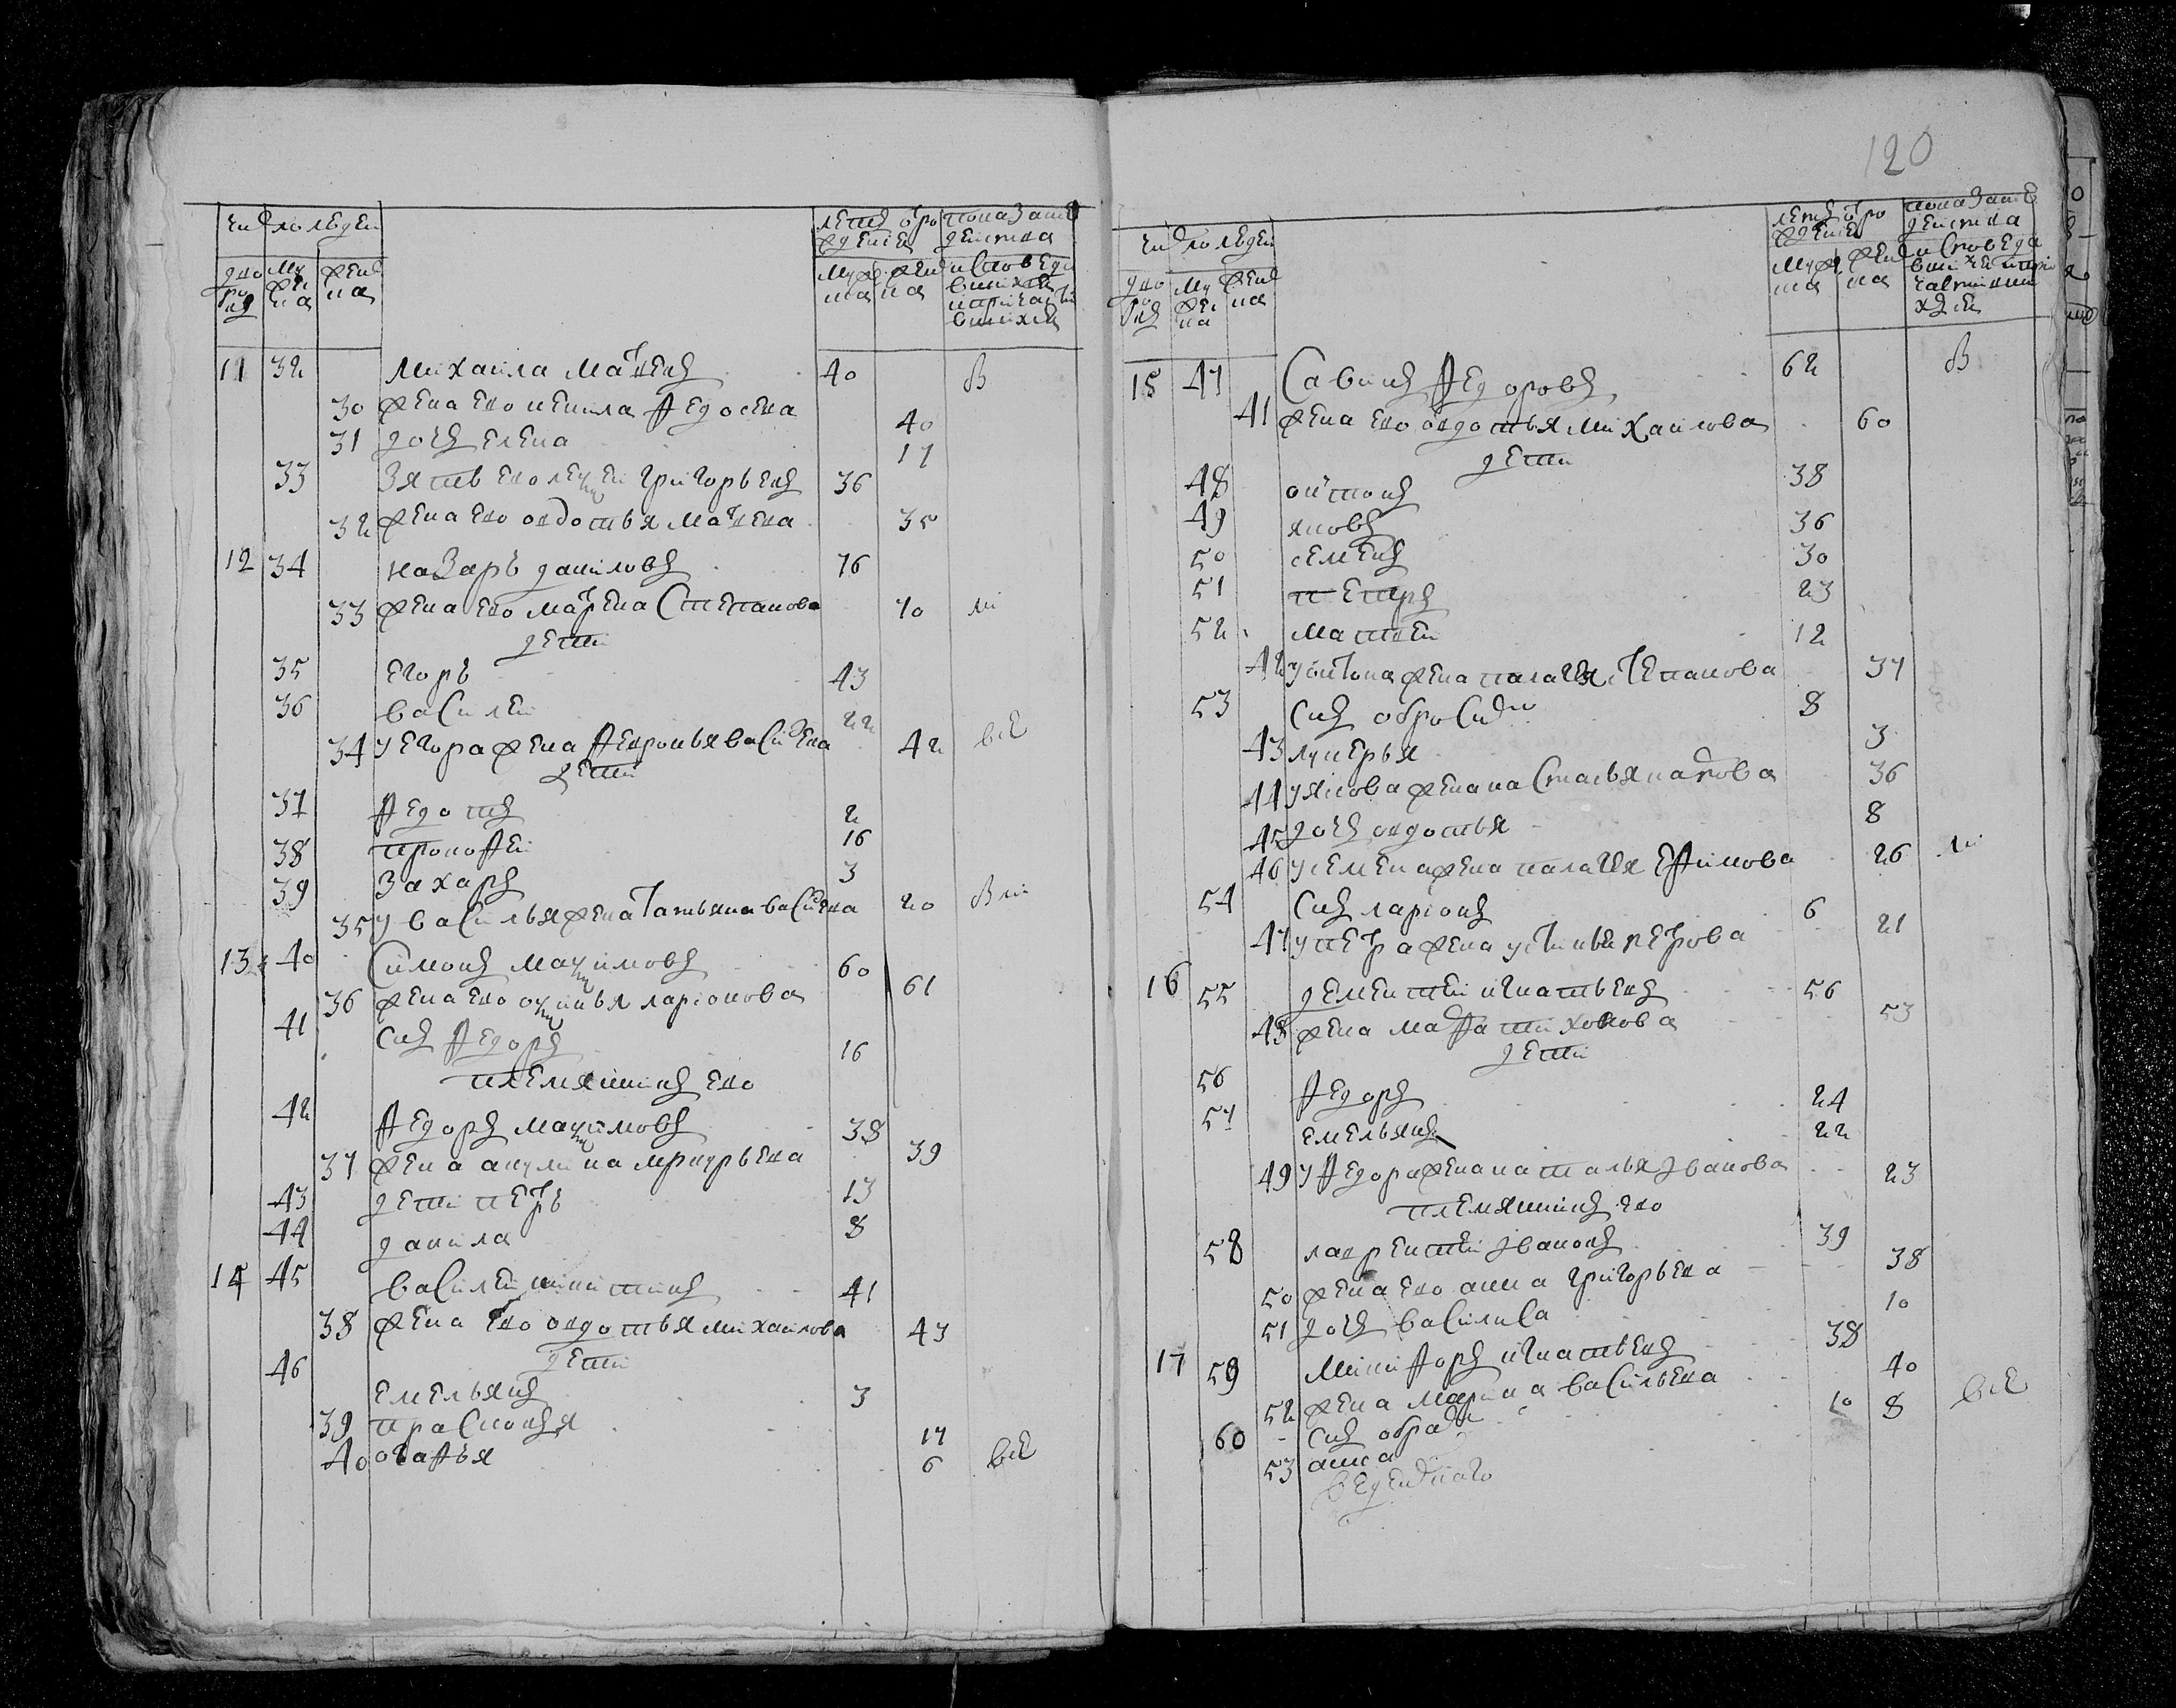 число людей
лета от рождения
показание действа
дворов
мужеска
женска
мужеска
женска
исповеди бывших и причастия бывших
11 32 михаила матвеев 40 в
30 жена ево некила федосева 40
31 дочь елена 17
33 зять ево григорьев 36
32 жена ево овдотья матвева 35
12 34 назаръ данилов 76
33 жена ево матрена степанова 70
дети
35 егоръ 43
36 василей 22
34 у егора жена февронья василева 42 все
дети
37 федот 2
38 прокофей 16
39 захар 3
35 у василья жена татьяна василева 20
13 40 симон максимов 60
36 жена ево оксинья ларионова 61
41 сын федор 16
племянник ево
42 федор максимов 38
37 жена акулина меркурьева 39
43 дети петръ 13
44 данила 8
14 45 василей никитин 41
38 жена ево овдотья михаилова 43
дети
46 емельян 3
39 прасковья 17
40 огафья 6 все
120
число людей
лета от рождения
показание действа
дворов
мужеска
женска
мужеска
женска
исповеди бывших и причастившихся
15 47 савин федоров 62 в
41 жена ево овдотья михаилова 60
дети
48 онтон 38
49 яков 36
50 семен 30
51 петр 23
52 матвей 12
42 у онтона жена палагея степанова 37
53 сын обросим 8
43 лукерья 3
44 у якова жена настасья 36
45 дочь овдотья 8
46 у семена жена палагея ефимова 26
54 сын ларион 6
47 у петра жена устинья петрова 21
16 55 дементей игнатьев 56
48 жена марфа тихонова 53
дети
56 федор 24
57 емельян 22
49 у федора жена наталья иванова 23
племянник ево
58 лаврентей иванов 39
50 жена ево анна григорьева 38
51 дочь василиса 10
17 59 никифор игнатьев 38
52 жена марина васильева 40
60 сын 10
53 анна 8 все